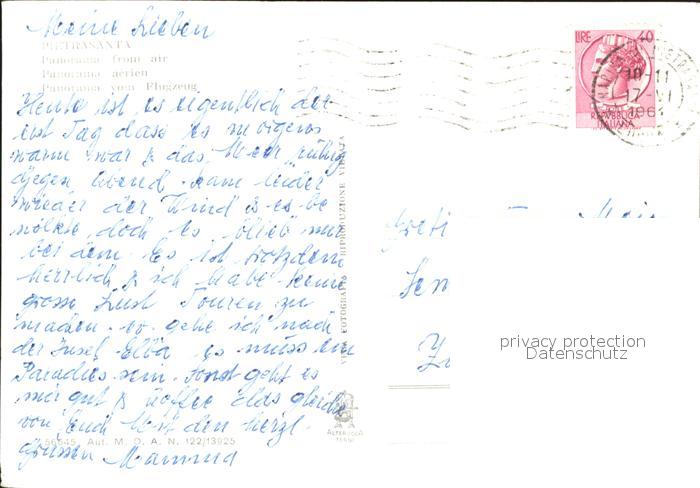 Meine Lieben
PIETRASANTA
Panorama from air
Panorama aérien
Panorama vom Flugzeug
Heute ist es eigentlich der
erst Tag dass es morgens
warm war & das Meer ruhig
Gegen Abend kam leider
wieder der Wind & es be
wölkte, doch es blieb nur
bei dem. Es ist trotzdem
herrlich & ich habe keine
grosse Lust Touren zu
machen. so gehe ich nach
der Insel Elba, es muss ein
Paradies sein. sonst geht es
mir gut & hoffe das gleiche
von Euch Mit den herzl.
Grüssen
56645 Aut. M. O. A. N. 122/13925
VERA FOTOGRAFIA RIPRODUZIONE VIETATA
ALTEROCCA
TERNI
LIRE 40
REPVBBLICA
ITALIANA
10-11
17
privacy protection
Datenschutz